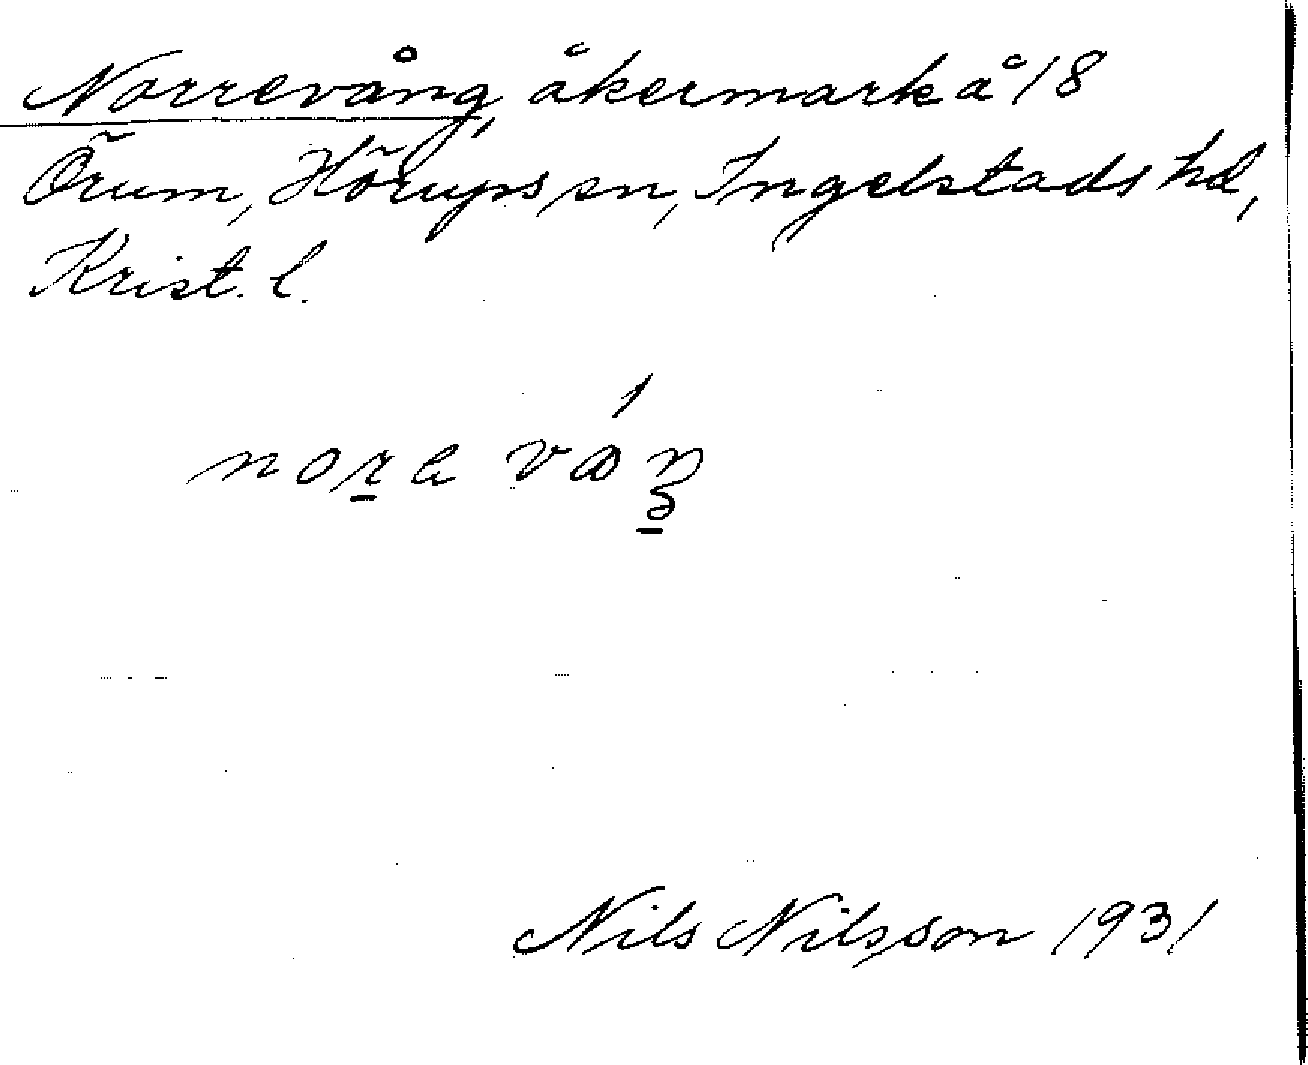 Norrevång, åkermark å 18
Örum, Hörups sn, Ingelstads hd,
Krist. l.
Nils Nilsson 1931